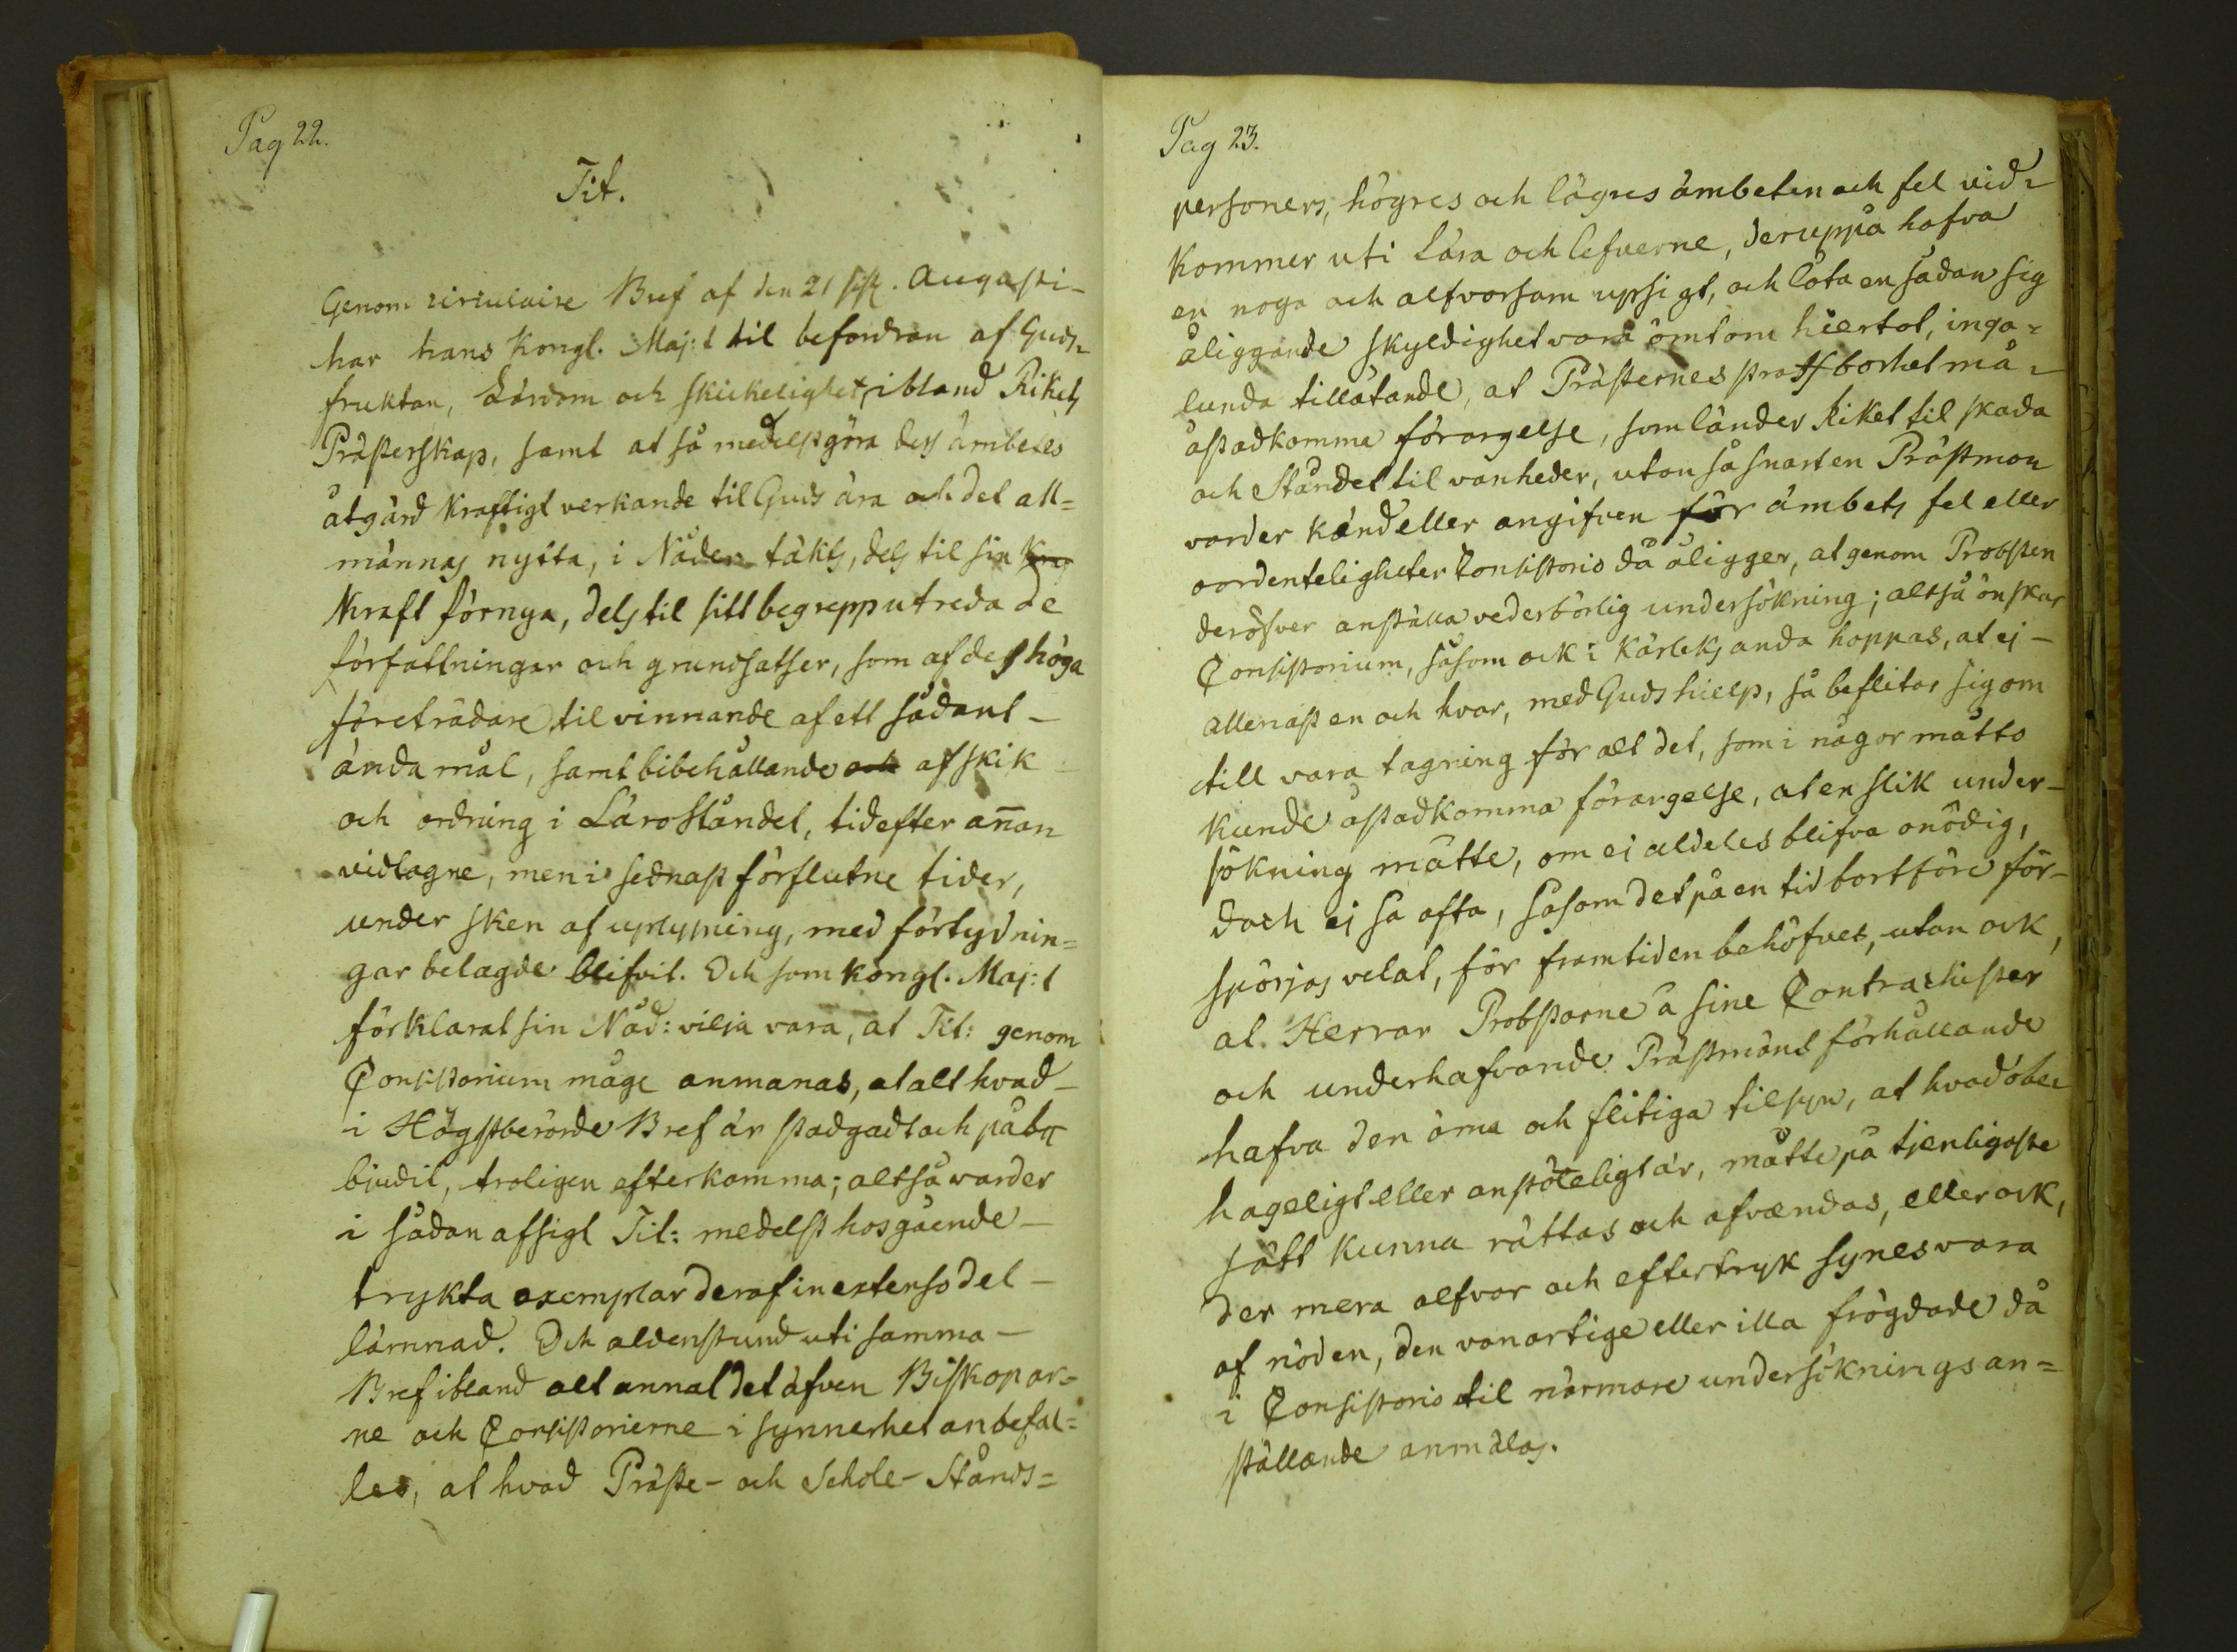 Pag 22.
Tit.
Genom circulaire Bref af den 21 sistl. Augusti
har hans Kongl. Maj:t til befordran af Guds-
fruktan, Lärdom och skickelighet, ibland Rikets
Prästerskap, samt at så medelst göra dess ämbetes
åtgärd kraftigt verkande til Guds ära och det all=
männas nytta, i Nåder täkts, dels til sin
kraft förnya, dels til sitt begrepp utreda de
författningar och grundsatser, som af dess höga
företrädare til vinnande af ett sådant
ändamål, samt bibehållande och af skik
och ordning i Lärostándet, tid efter annan
vidtagne, men i sednast förflutne tider,
under sken af uplysning, med förtydnin=
gar belagde blifvit. Och som Kongl. Maj:t
förklarat sin Nåd: vilja vara, at Tit: genom
Consistorium måge anmanas, at alt hvad
i Högstberörde Bref är stadgadt och påbu
biudit, troligen efterkomma; altså varder
i sådan afsigt Tit: medelst hosgående
trykta exemplar deraf in extenso del
lämnad. Och aldenstund uti samma
Bref ibland alt annat det äfven Biskopar=
ne och Consistorierne i synnerhet anbefal=
les, at hvad Präste- och Schole-Stånds=
Pag 23.
personers, högres och lägres ämbeten och fel vid=
kommer uti Lära och lefverne, deruppå hafva
en noga och alfvorsam upsigt, och låta en sådan sig
åliggande skyldighet vara ömt om hiertat, inga=
lunda tillåtande, at Prästernes straffbarhet må
åstadkomma förargelse, som länder Riket til skada
och Ståndet til vanheder, utan så snart en Prästman
varder känd eller angifven för ämbets fel eller
oordenteligheter Consistorio då åligger, at genom Probsten
deröfver anställa vederbörlig undersökning; altså önskar
Consistorium, såsom ock i Kärleks anda hoppas, at ej
allenast en och hvar, med Guds hielp, så beflitar sig om
till vara tagning för alt det, som i någor måtto
kunde åstadkomma förargelse, at en slik under-
sökning måtte, om ei aldeles blifva onödig,
doch ej så ofta, såsom det på en tid bortföre för-
spörjas velat, för framtiden behöfves, utan ock,
at Herrar Probstarne å sine Contractister
och underhafvande Prästmäns förhållande
hafva den öma och flitiga tilsyn, at hvad obe=
hageligt eller anstöteligt är, måtte på tjenligaste
sätt kunna rättas och afvændas, eller ock,
der mera alfvar och eftertryk synes vara
af nöden, den vanartige eller illa frögdade då
i Consistorio til närmare undersöknings an=
ställande anmälas.